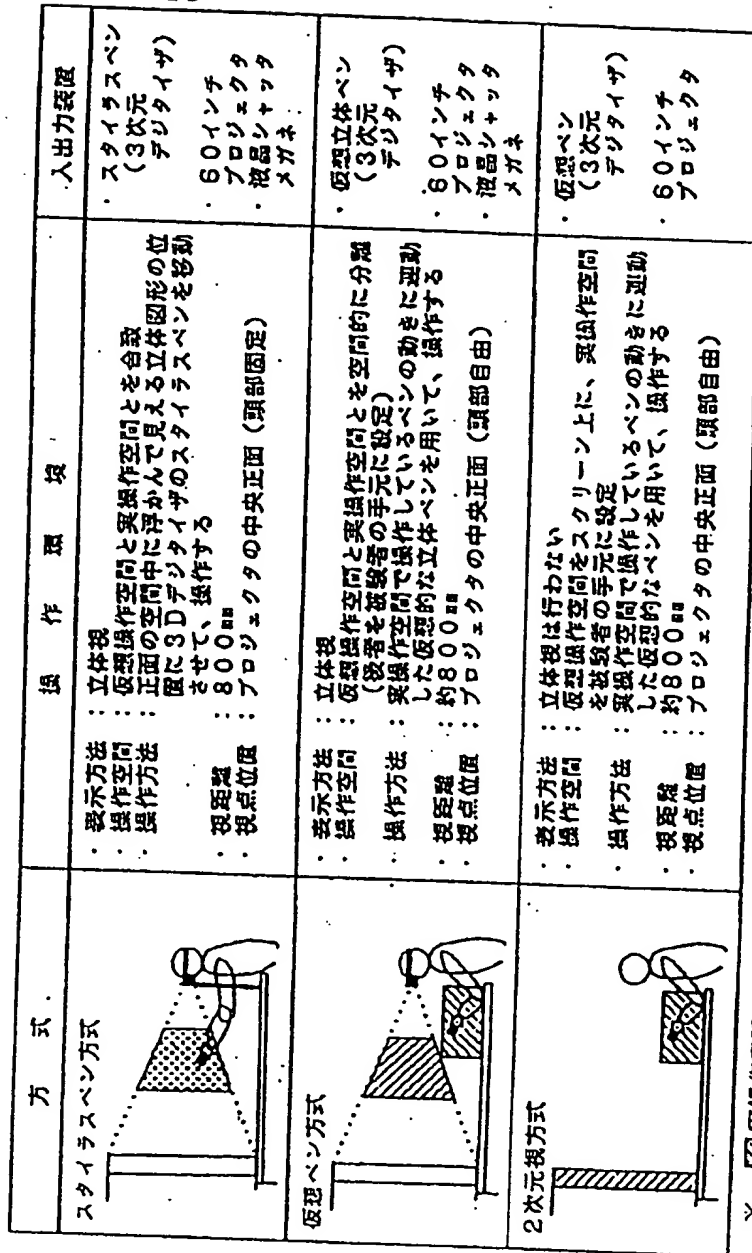 方 式
操 作 環 境
入出力装置
スタイラスペン方式
・表示方法 : 立体視
・操作空間 : 仮想操作空間と実操作空間とを合致
・操作方法 : 正面の空間中に浮かんで見える立体図形の位
置に3Dデジタイザのスタイラスペンを移動
させて、操作する
・視距離 : 800mm
・視点位置 : プロジェクタの中央正面(頭部固定)
・スタイラスペン
(3次元
デジタイザ)
・60インチ
プロジェクタ
・液晶シャッタ
メガネ
仮想ペン方式
・表示方法 : 立体視
・操作空間 : 仮想操作空間と実操作空間とを空間的に分離
(後者を被験者の手元に設定)
・操作方法 : 実操作空間で操作しているペンの動きに連動
した仮想的な立体ペンを用いて、操作する
・視距離 : 約800mm
・視点位置 : プロジェクタの中央正面(頭部自由)
・仮想立体ペン
(3次元
デジタイザ)
・60インチ
プロジェクタ
・液晶シャッタ
メガネ
2次元視方式
・表示方法 : 立体視は行わない
・操作空間 : 仮想操作空間をスクリーン上に、実操作空間
を被験者の手元に設定
・操作方法 : 実操作空間で操作しているペンの動きに連動
した仮想的なペンを用いて、操作する
・視距離 : 約800mm
・視点位置 : プロジェクタの中央正面(頭部自由)
・仮想ペン
(3次元
デジタイザ)
・60インチ
プロジェクタ
※